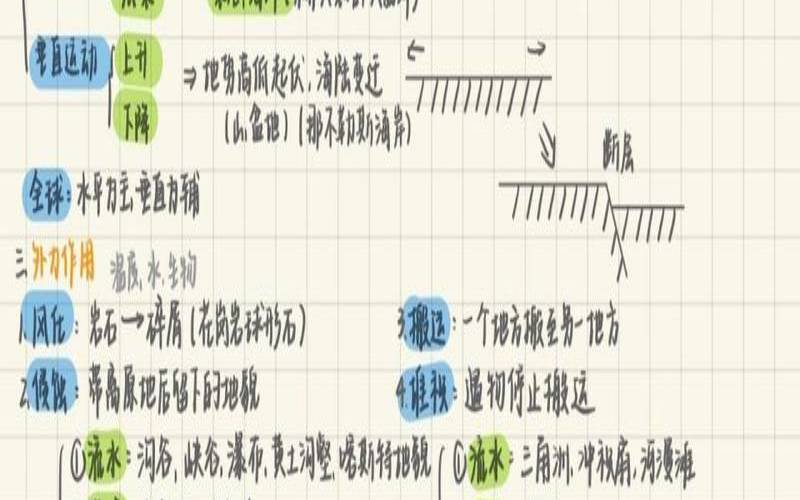 垂直运动 上升 ⇒ 地势高低起伏,海陆变迁
下降 (山,盆地) (那不勒斯海岸)
断层
全球:水平为主,垂直为辅
三、外力作用 温度,水,生物
1.风化:岩石→碎屑(花岗岩球形石)
2.侵蚀:带离原地后留下的地貌
①流水:沟谷,峡谷,瀑布,黄土沟壑,喀斯特地貌
3.搬运:一个地方搬至另一地方
4.堆积:遇物停止搬运
①流水:三角洲,冲积扇,河漫滩